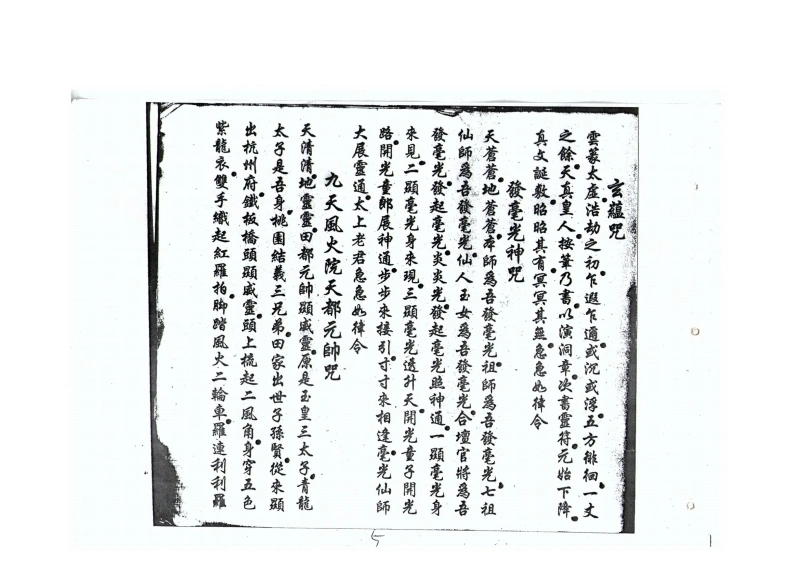 玄蘊咒
雲篆太虛浩劫之初乍遐乍邇或沉或浮五方徘徊一丈
之餘天真皇人按筆乃書以演洞章次書靈符元始下降
真文誕敷昭昭其有冥冥其無急急如律令
發毫光神咒
天蒼蒼地蒼蒼本師爲吾發毫光祖師爲吾發毫光七祖
仙師爲吾發毫光仙人玉女爲吾發毫光合壇官將爲吾
發毫光發起毫光炎炎光發起毫光照神通一顯毫光身
來見二顯毫光身來現三顯毫光透升天開光童子開光
路開光童郎展神通步步來接引寸寸來相逢毫光仙師
大展靈通太上老君急急如律令
九天風火院天都元帥咒
天清清地靈靈田都元帥顯威靈原是玉皇三太子青龍
太子是吾身桃園結義三兄弟田家出世子孫賢從來顯
出杭州府鐵板橋頭顯威靈頭上梳起二風角身穿五色
紫龍衣雙手織起紅羅拍脚踏風火二輪車羅連利利羅
5
1